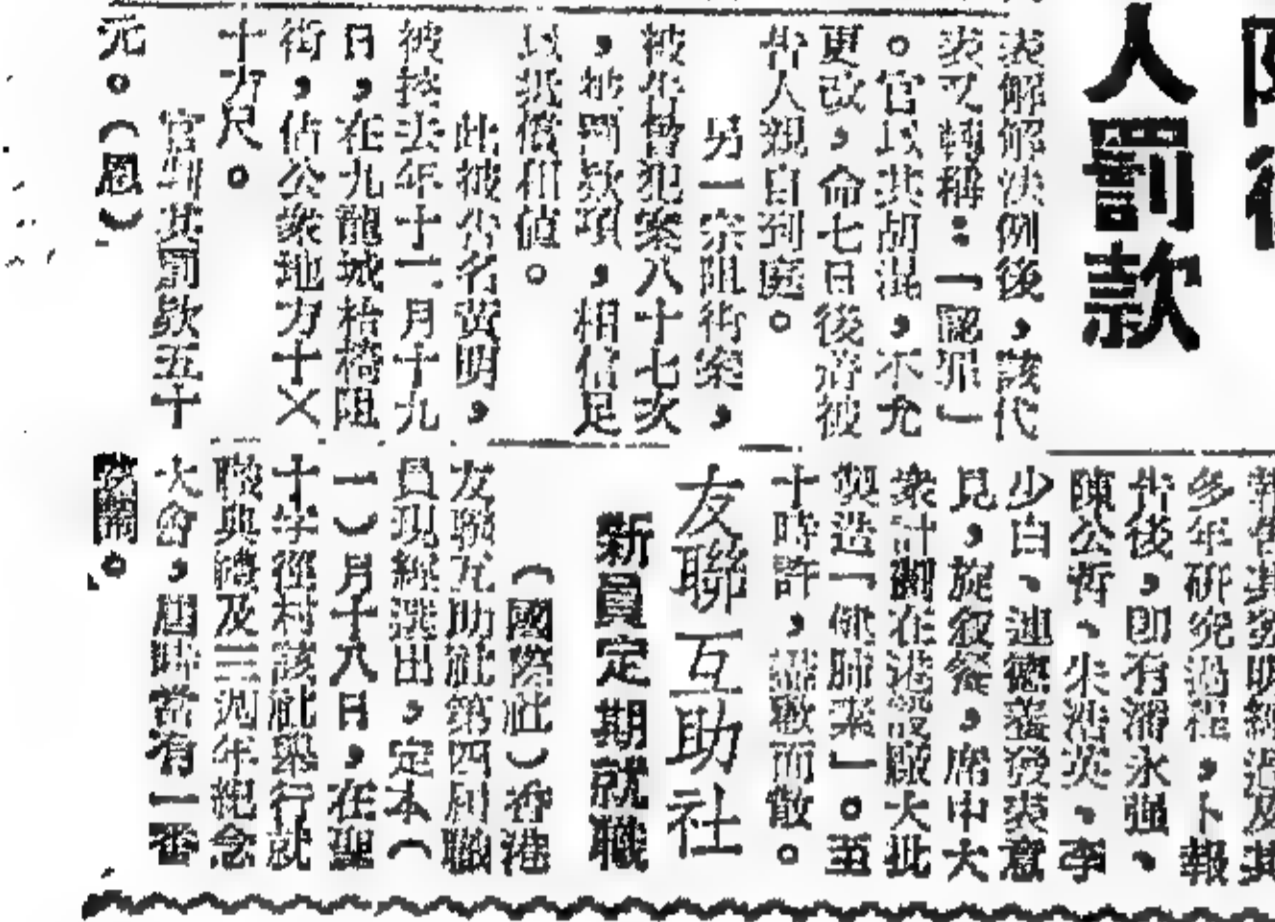 人罰款
表解解法例後，該代
表又轉稱：「認罪」
。官以其胡混，不允
更改，命七日後着被
告人親自到庭。
另一宗阻街案，
被告曾犯案八十七次
，被罰款項，相信足
以抵償租値。
此被告名黃明，
被控去年十二月十九
日，在九龍城梧桐阻
街，佔公衆地方十×
十方尺。
官判其罰款五十
元。（恩）
報告其發明經過及其
多年硏究過程，卜報
告後，卽有潘永強、
陳公哲、朱浩英、李
少白、連德義發表意
見，旋敘餐，席中大
衆計劃在港設廠大批
製造「健肺藥」。至
十時許，盡歡而散。
友聯互助社
新員定期就職
（國際社）香港
友聯互助社第四屆職
員現經選出，定本（
一）月十八日，在聖
十字徑村該社舉行就
職典禮及三週年紀念
大會，屆時當有一番
熱鬧。